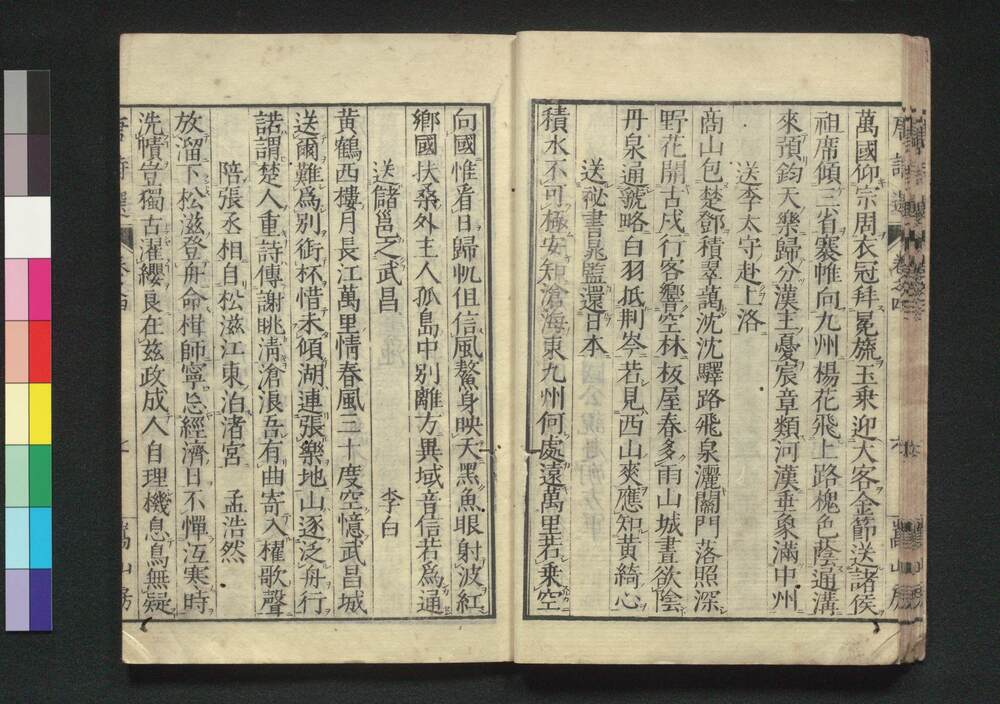 萬國仰宗周衣冠拜冕旒玉乗迎大客金節送諸侯
祖席傾三省褰帷向九州楊花飛上路槐色蔭通溝
來預鈞天樂歸分漢主憂宸章類河漢垂象滿中州
送李太守赴上洛
商山包楚鄧積翠藹沈沈驛路飛泉灑關門落照深
野花開古戍行客響空林板屋春多雨山城晝欲陰
丹泉通虢略白羽抵荆岑若見西山爽應知黄綺心
送祕書晁監還日本
積水不可極安知滄海東九州何處遠萬里若乗空
向國惟看日歸帆但信風鰲身映天黑魚眼射波紅
鄉國扶桑外主人孤島中別離方異域音信若爲通
送儲邕之武昌 李白
黄鶴西樓月長江萬里情春風三十度空憶武昌城
送爾難爲別銜杯惜未傾湖連張樂地山逐泛舟行
諾謂楚人重詩傳謝朓清滄浪吾有曲寄入櫂歌聲
陪張丞相自松滋江東泊渚宮 孟浩然
放溜下松滋登舟命楫師寧忘經濟日不憚沍寒時
洗幘豈獨古濯纓良在茲政成人自理機息鳥無疑
唐詩選 卷之四
嵩山房